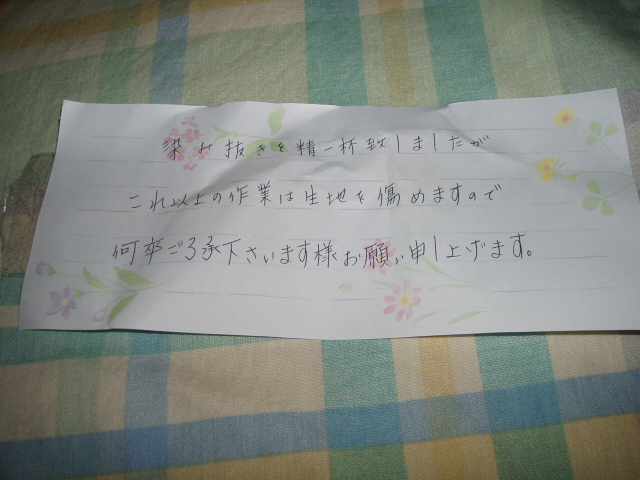 染み抜きを精一杯致しましたが
これ以上の作業は生地を傷めますので
何卒ご了承下さいます様お願い申し上げます。